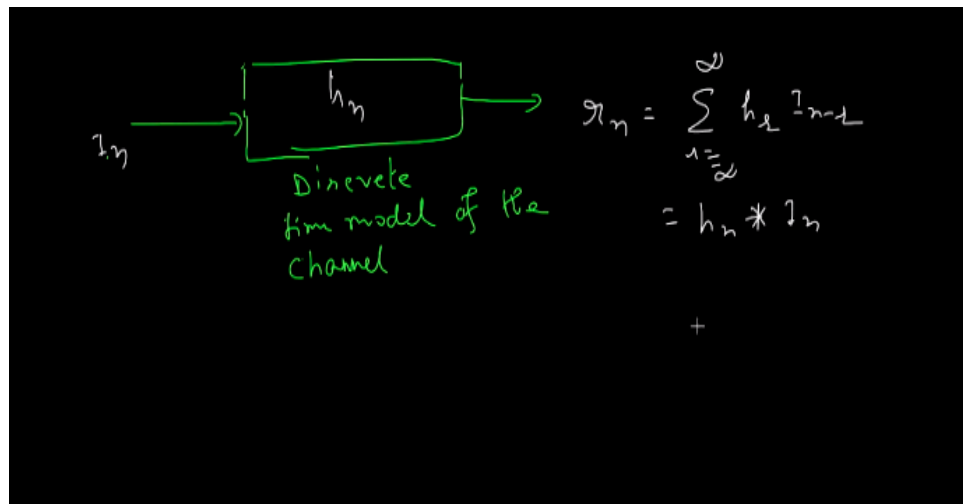 I_n
h_n
Discrete
time model of the
channel
r_n = ∑_{r=-∞}^{∞} h_r I_{n-r}
= h_n * I_n